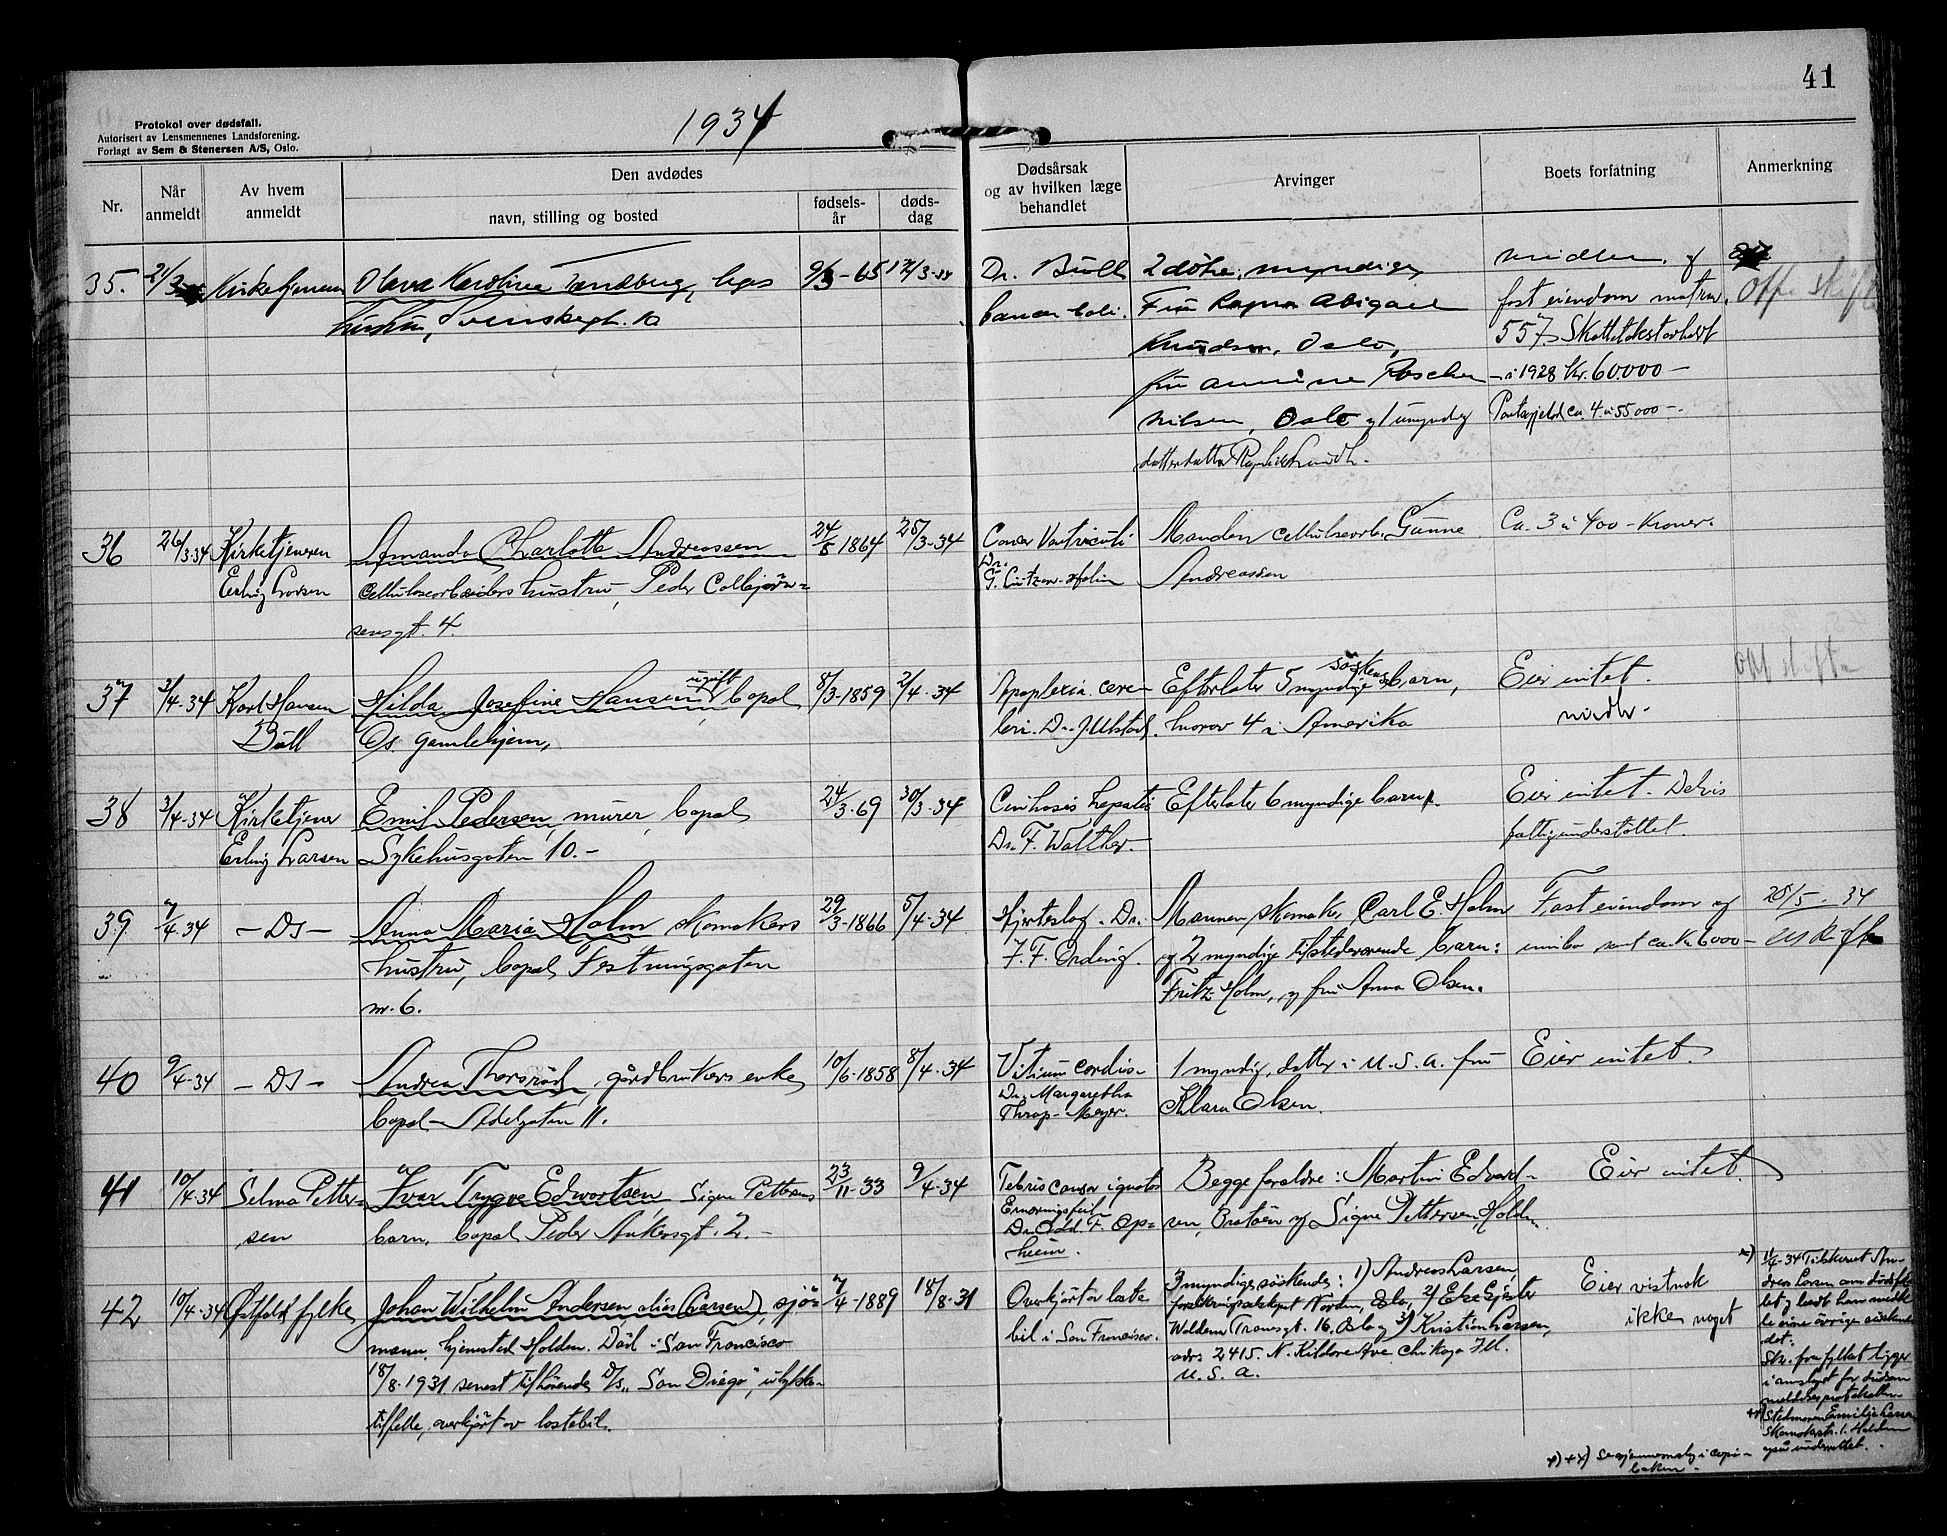 41
1934
Protokol over dødsfall.
Autorisert av Lensmennenes Landsforening.
Forlagt av Sem & Stenersen A/S, Oslo.
Nr.
Når
anmeldt
Av hvem
anmeldt
Den avdødes
navn, stilling og bosted
fødsels-
år
døds-
dag
Dødsårsak
og av hvilken læge
behandlet
Arvinger
Boets forfatning
Anmerkning
35. 21/3 Kirketjeneren Olava Karoline Tandberg, 9/3-65 17/3-34 Dr. Büll 2 døtre, myndige,
hustru, Svenskegt. 10 cancer coli. Fru Ragna Abigael fast eiendom matr.nr. Offt skifte
Knudsen, Oslo, 557. Skattetakst
fru Annine Roscher i 1928 Kr. 60.000 –
Nilsen, Oslo og 1 umyndig Pantegjeld ca. 4 à 55000 –.
datterdatter
36 26/3-34 Kirketjeneren Amanda Charlotte Andreassen 24/8-1864 25/3-34 Cancer Ventriculi Manden cellulosearb. Gunne Ca. 3 à 400 – Kroner.
Erling Larsen cellulosearbeiders hustru, Peder Colbjørn= Dr. G. Andreassen
sensgt. 4.
37 3/4-34 Karl Hansen Hilda Josefine Hansen, ugift, bopæl 8/3-1859 2/4-34 Apoplexia cere= Efterlater 5 myndige søskenbarn, Eier intet. Off skifte
Büll Os Gamlehjem, bri. Dr. J. Ulstad. hvorav 4 i Amerika
38 3/4-34 Kirketjener Emil Pedersen, murer, bopæl 24/3-69 30/3-34 Cirrhosis hepatis Efterlater 6 myndige barn. Eier intet. Delvis
Erling Larsen Sykehusgaten 10.– Dr. F. Walther.– fattigunderstøttet.
39 7/4-34 – Ds – Anna Maria Holm skomakers 29/3-1866 5/4-34 Hjerteslag. Dr. Mannen, skomak. Carl E. Holm Fast eiendom og 25/5-34
hustru, bopæl Festningsgaten F. F. Ording. og 2 myndige tilstedeværende barn: innbo samt ca. Kr. 6000 –
nr. 6. Fritz Holm, og fru Anna Olsen.
40 9/4-34 – Ds – Andrea Thorsrød, gårdbrukers enke 10/6-1858 8/4-34 Vitium cordis– 1 myndig datter i U.S.A. fru Eier intet.
bopæl – Adelgaten 11. Dr. Margaretha Klara Olsen.
Thrap-Meyer.
41 10/4-34 Selma Petter= Ivar Trygve Edvartsen Signe Pettersens 23/11-33 9/4-34 Febris causa ignota Begge foreldre: Martin Edvard= Eier intet.
sen barn, bopæl Peder Ankersgt. 2.– Ernæringsfeil sen, og Signe Pettersen, Halden.
Dr. Odd. F. Op=
heim.
42 10/4-34 Østfold fylke Johan Wilhelm Andersen alias (Larsen), sjø= 7/4-1889 18/8-31 Overkjørt av laste 3 myndige søskende: 1) Andreas Larsen, Eier vistnok
mann, hjemsted Halden. Død i San Francisco bil i San Francisco. forsikringsselskapet Norden, Oslo, 2)
18/8-1931 senest tilhørende D/s "San Diego", ulykkes= Waldem. Thranesgt. 16, Oslo og 3) Kristian Larsen, ikke noget
tilfelle, overkjørt av lastebil. adr. 2415. N. Kildare Ave Chikago Ill.
U.S.A.
x) 11/4-34 Tilskrevet An=
dreas Larsen om dødsfal=
let og bedt ham medde=
le sine øvrige søskende
det.
Skr. fra fylket ligger
i omslaget for dødsan=
meldelsesprotokollen
xx) Stedmoren Emilie Larsen
Skomakerstr. 1. Halden
også underrettet.
x) + xx) Se gjennemslag i kopi-
boken –